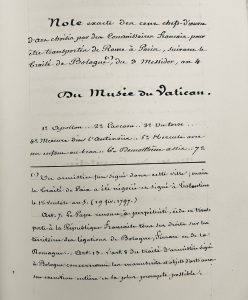 Note exacte des cent chefs-d'œuvre
d'art choisis par des Commissaires français pour
être transportés de Rome à Paris, suivant le
traité de Bologne, du 3 Messidor, an 4
Du Musée du Vatican.
1º Apollon .. 2º Laocoon .. 3º Un torse ..
4º Mercure dit l'Antinoüs .. 5º Hercule avec
un enfant au bras 6º Démosthène assis .. 7º
Un armistice fut signé dans cette ville; mais
le traité de Paix a été négocié et signé à Tolentino
le 1º Ventôse an 5. (19 fév. 1797).
Art. 7. Le Pape renonce à perpétuité, cède et trans-
porte à la République Française tous ses droits sur les
territoires des légations de Bologne, Ferrare et de la
Romagne. Art. 13. L'art 8 du traité d'armistice signé
à Bologne concernant les manuscrits et objets d'art aura
son exécution entière et la plus prompte possible.